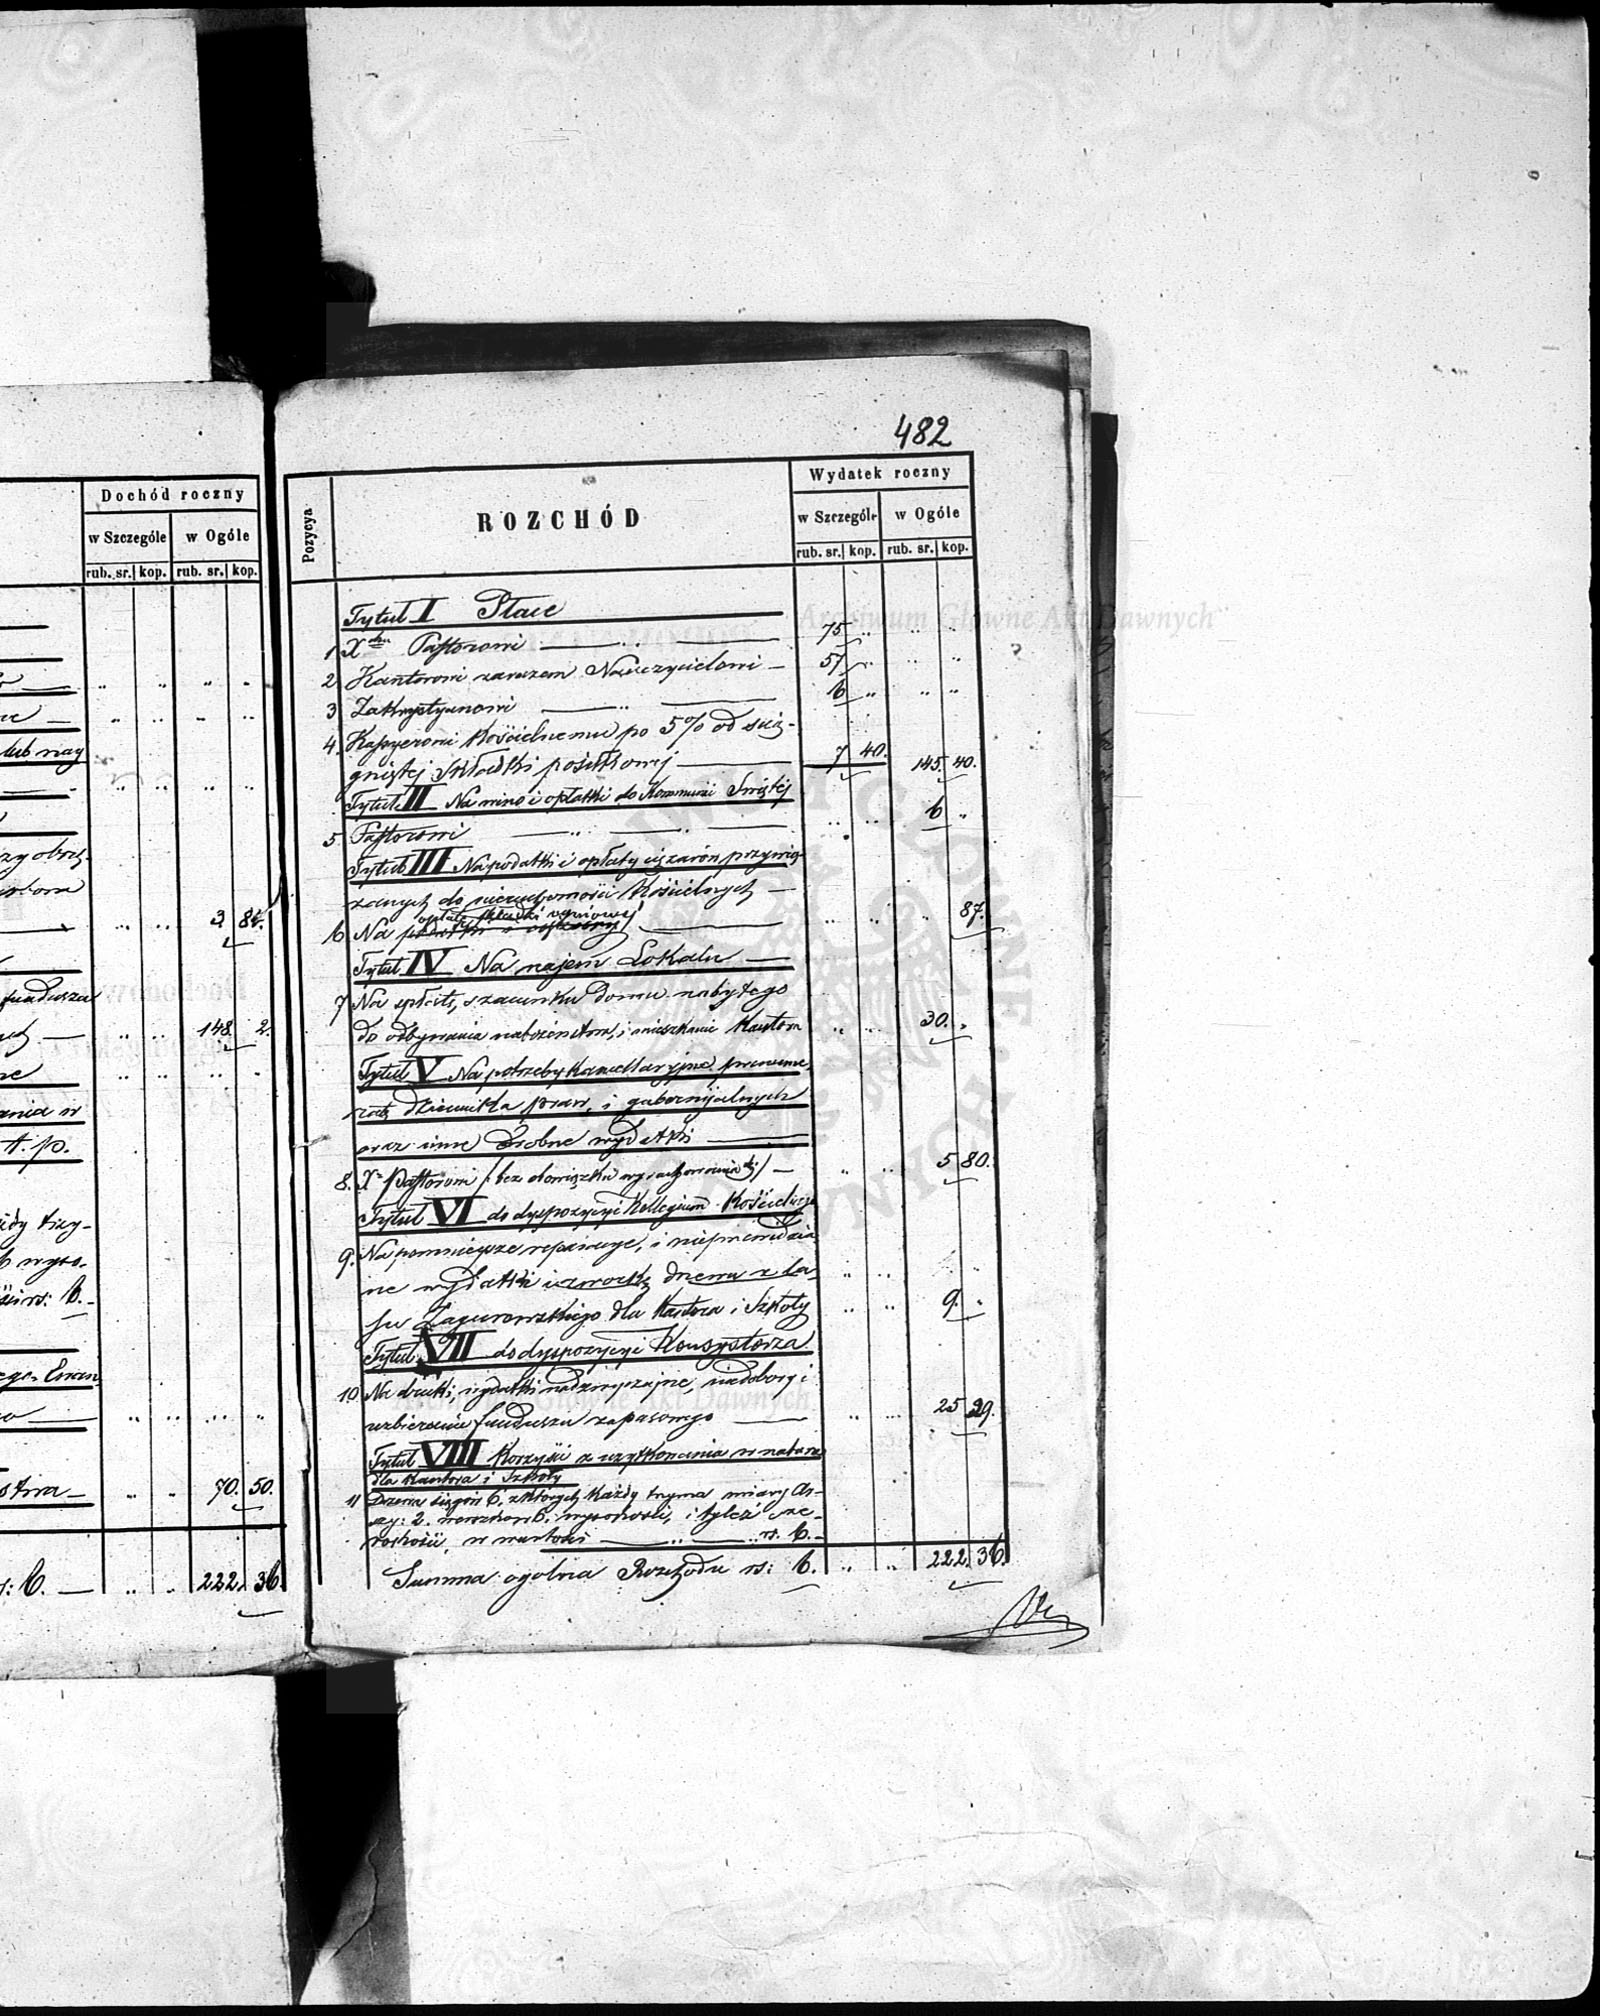 482
Dochód roczny
w Szczególe w Ogóle
rub. sr. kop. rub. sr. kop.
lub nay
3 84.
funduszu
148. 2.
t. p.
70. 50.
6. — 222. 36.
Pozycya
ROZCHÓD
Wydatek roczny
w Szczególe w Ogóle
rub. sr. kop. rub. sr. kop.
Tytuł I Płace
1 Xdzu Pastorowi 75
2 Kantorowi zarazem Nauczycielowi — 57
3 Zakrystyanowi 6
4. Kassyerowi Kościelnemu po 5% od ścią-
gniętej Składki posiłkowej — 7 40. 145. 40.
Tytuł II Na wino i opłatki do Kommunii Świętej
5. Pastorowi 6
Tytuł III Na podatki i opłaty ciężarów przywią-
zanych do nieruchomości Kościelnych —
opłatę składki ogniowej
6 Na podatki i ciężary 87.
Tytuł IV Na najem Lokalu —
7 Na spłatę szacunku domu nabytego
do odbywania nabożeństwa, i mieszkanie Kantora 30.
Tytuł V Na potrzeby Kancellaryjne, prenume-
ratę dziennika praw, i gubernijalnych
oraz inne drobne wydatki —
8. Xu Pastorowi (bez obowiązku wyrachowania się) — 5 80.
Tytuł VI do dyspozycyi Kollegium Kościelnego
9. Na pomniejsze reparacye, i nieprzewidzia-
ne wydatki i zwózkę drzewa z la-
su Zagurowskiego dla Kantora i Szkoły 9.
Tytuł VII do dyspozycyi Konsystorza
10 Na druki, wydatki nadzwyczajne, niedobory i
uzbieranie funduszu zapasowego — 25 29.
Tytuł VIII Korzyści z użytkowania w naturze
dla Kantora i Szkoły
11 Drzewa sążni 6, z których każdy trzyma miary Ar-
szy: 2. werszków 6. wysokości, i tyleż sze-
rokości, w wartości — rs. 6.
Summa ogólna Rozchodu rs: 6. 222. 36.
Archiwum Główne Akt Dawnych
Archiwum Główne Akt Dawnych